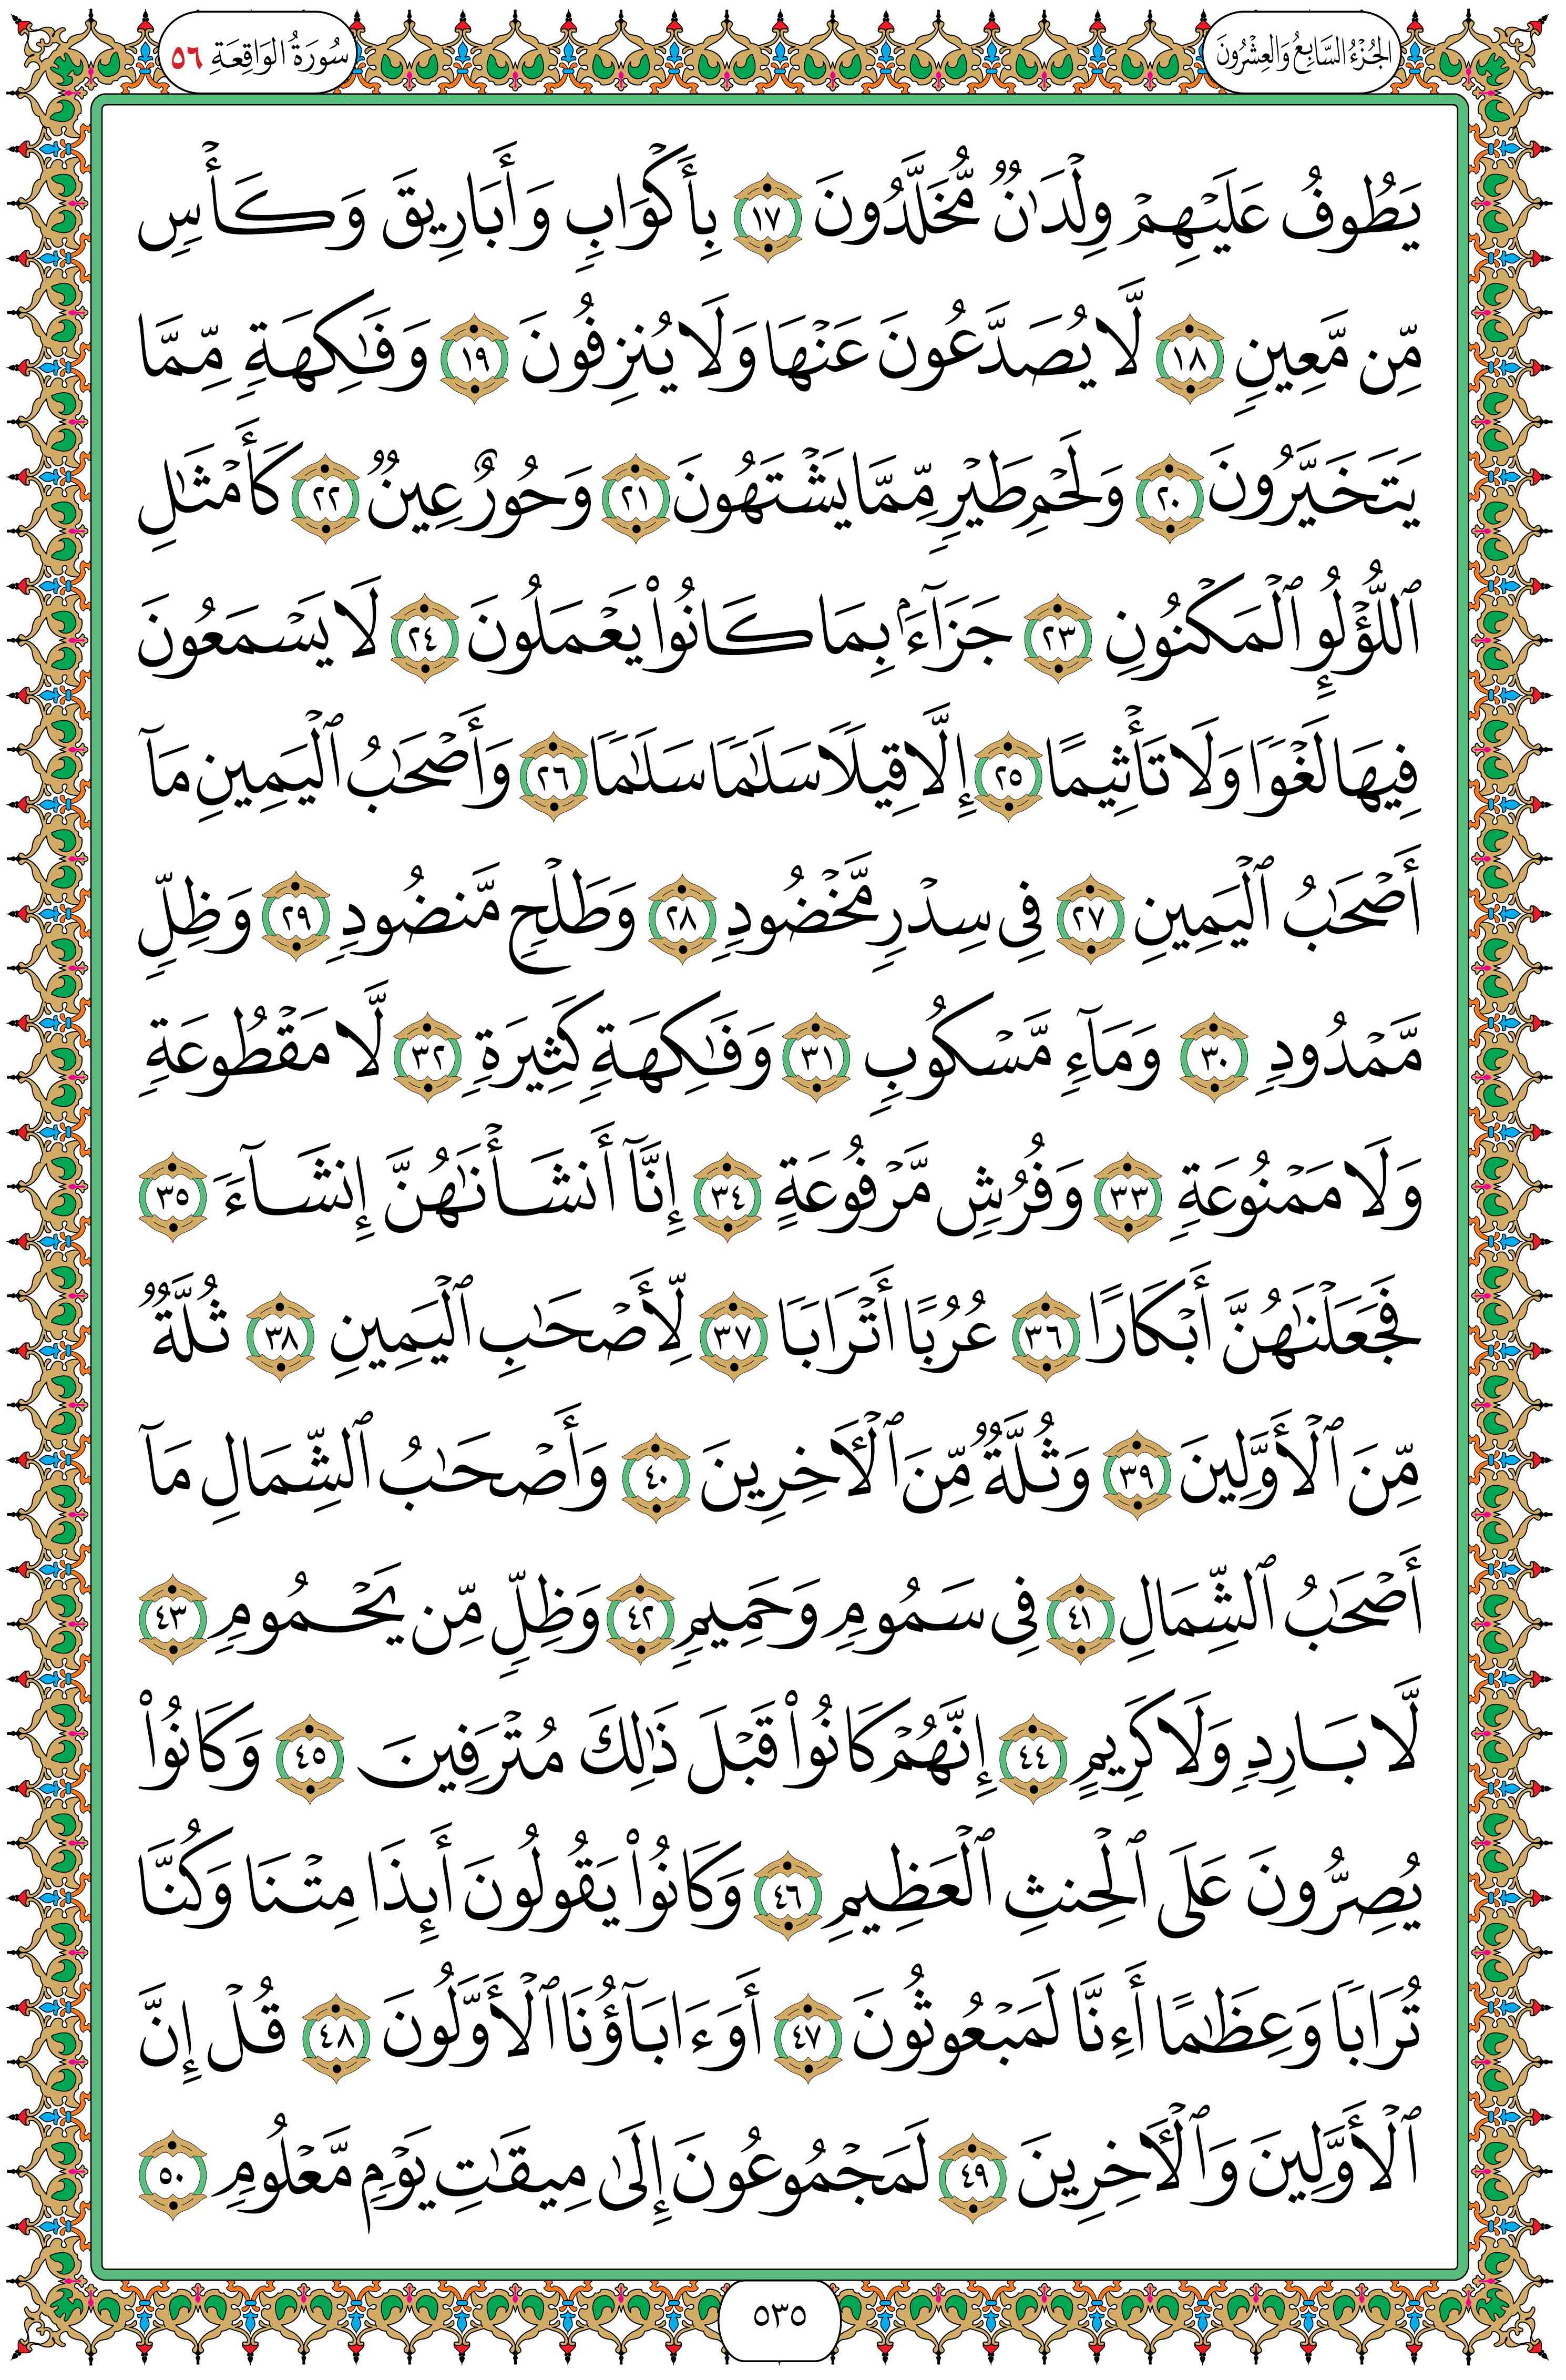 الجُزْءُ السَّابِعُ وَالعِشْرُونَ
سُورَةُ الوَاقِعَةِ ٥٦
يَطُوفُ عَلَيۡهِمۡ وِلۡدَٰنٞ مُّخَلَّدُونَ ١٧ بِأَكۡوَابٖ وَأَبَارِيقَ وَكَأۡسٖ
مِّن مَّعِينٖ ١٨ لَّا يُصَدَّعُونَ عَنۡهَا وَلَا يُنزِفُونَ ١٩ وَفَٰكِهَةٖ مِّمَّا
يَتَخَيَّرُونَ ٢٠ وَلَحۡمِ طَيۡرٖ مِّمَّا يَشۡتَهُونَ ٢١ وَحُورٌ عِينٞ ٢٢ كَأَمۡثَٰلِ
ٱللُّؤۡلُوِٕ ٱلۡمَكۡنُونِ ٢٣ جَزَآءَۢ بِمَا كَانُواْ يَعۡمَلُونَ ٢٤ لَا يَسۡمَعُونَ
فِيهَا لَغۡوٗا وَلَا تَأۡثِيمًا ٢٥ إِلَّا قِيلٗا سَلَٰمٗا سَلَٰمٗا ٢٦ وَأَصۡحَٰبُ ٱلۡيَمِينِ مَآ
أَصۡحَٰبُ ٱلۡيَمِينِ ٢٧ فِي سِدۡرٖ مَّخۡضُودٖ ٢٨ وَطَلۡحٖ مَّنضُودٖ ٢٩ وَظِلّٖ
مَّمۡدُودٖ ٣٠ وَمَآءٖ مَّسۡكُوبٖ ٣١ وَفَٰكِهَةٖ كَثِيرَةٖ ٣٢ لَّا مَقۡطُوعَةٖ
وَلَا مَمۡنُوعَةٖ ٣٣ وَفُرُشٖ مَّرۡفُوعَةٍ ٣٤ إِنَّآ أَنشَأۡنَٰهُنَّ إِنشَآءٗ ٣٥
فَجَعَلۡنَٰهُنَّ أَبۡكَارًا ٣٦ عُرُبًا أَتۡرَابٗا ٣٧ لِّأَصۡحَٰبِ ٱلۡيَمِينِ ٣٨ ثُلَّةٞ
مِّنَ ٱلۡأَوَّلِينَ ٣٩ وَثُلَّةٞ مِّنَ ٱلۡأٓخِرِينَ ٤٠ وَأَصۡحَٰبُ ٱلشِّمَالِ مَآ
أَصۡحَٰبُ ٱلشِّمَالِ ٤١ فِي سَمُومٖ وَحَمِيمٖ ٤٢ وَظِلّٖ مِّن يَحۡمُومٖ ٤٣
لَّا بَارِدٖ وَلَا كَرِيمٍ ٤٤ إِنَّهُمۡ كَانُواْ قَبۡلَ ذَٰلِكَ مُتۡرَفِينَ ٤٥ وَكَانُواْ
يُصِرُّونَ عَلَى ٱلۡحِنثِ ٱلۡعَظِيمِ ٤٦ وَكَانُواْ يَقُولُونَ أَئِذَا مِتۡنَا وَكُنَّا
تُرَابٗا وَعِظَٰمًا أَءِنَّا لَمَبۡعُوثُونَ ٤٧ أَوَءَابَآؤُنَا ٱلۡأَوَّلُونَ ٤٨ قُلۡ إِنَّ
ٱلۡأَوَّلِينَ وَٱلۡأٓخِرِينَ ٤٩ لَمَجۡمُوعُونَ إِلَىٰ مِيقَٰتِ يَوۡمٖ مَّعۡلُومٖ ٥٠
٥٣٥